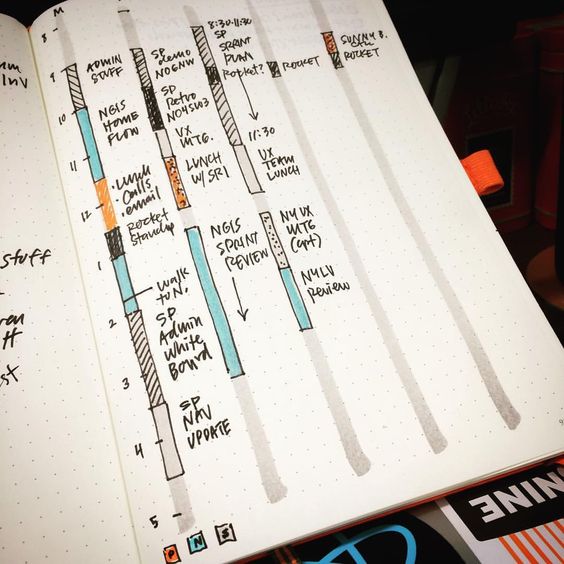 M
8
9
10
11
12
1
2
3
4
5
ADMIN
STUFF
NGIS
HOME
FLOW
• Lunch
• calls
• email
Rocket
Standup
WALK
TO N.
SP
Admin
White
Board
SP
NAV
UPDATE
SP
demo
NOGNW
SP
Retro
NO4SU03
UX
MTG.
LUNCH
W/ SRI
NGIS
SPRINT
REVIEW
8:30-11:30
SP
SPRINT
PLAN
Rocket?
11:30
UX
TEAM
LUNCH
NY UX
MTG
(opt)
NYLV
Review
ROCKET
SUNNY B.
ROCKET
P N S
stuff
NINE